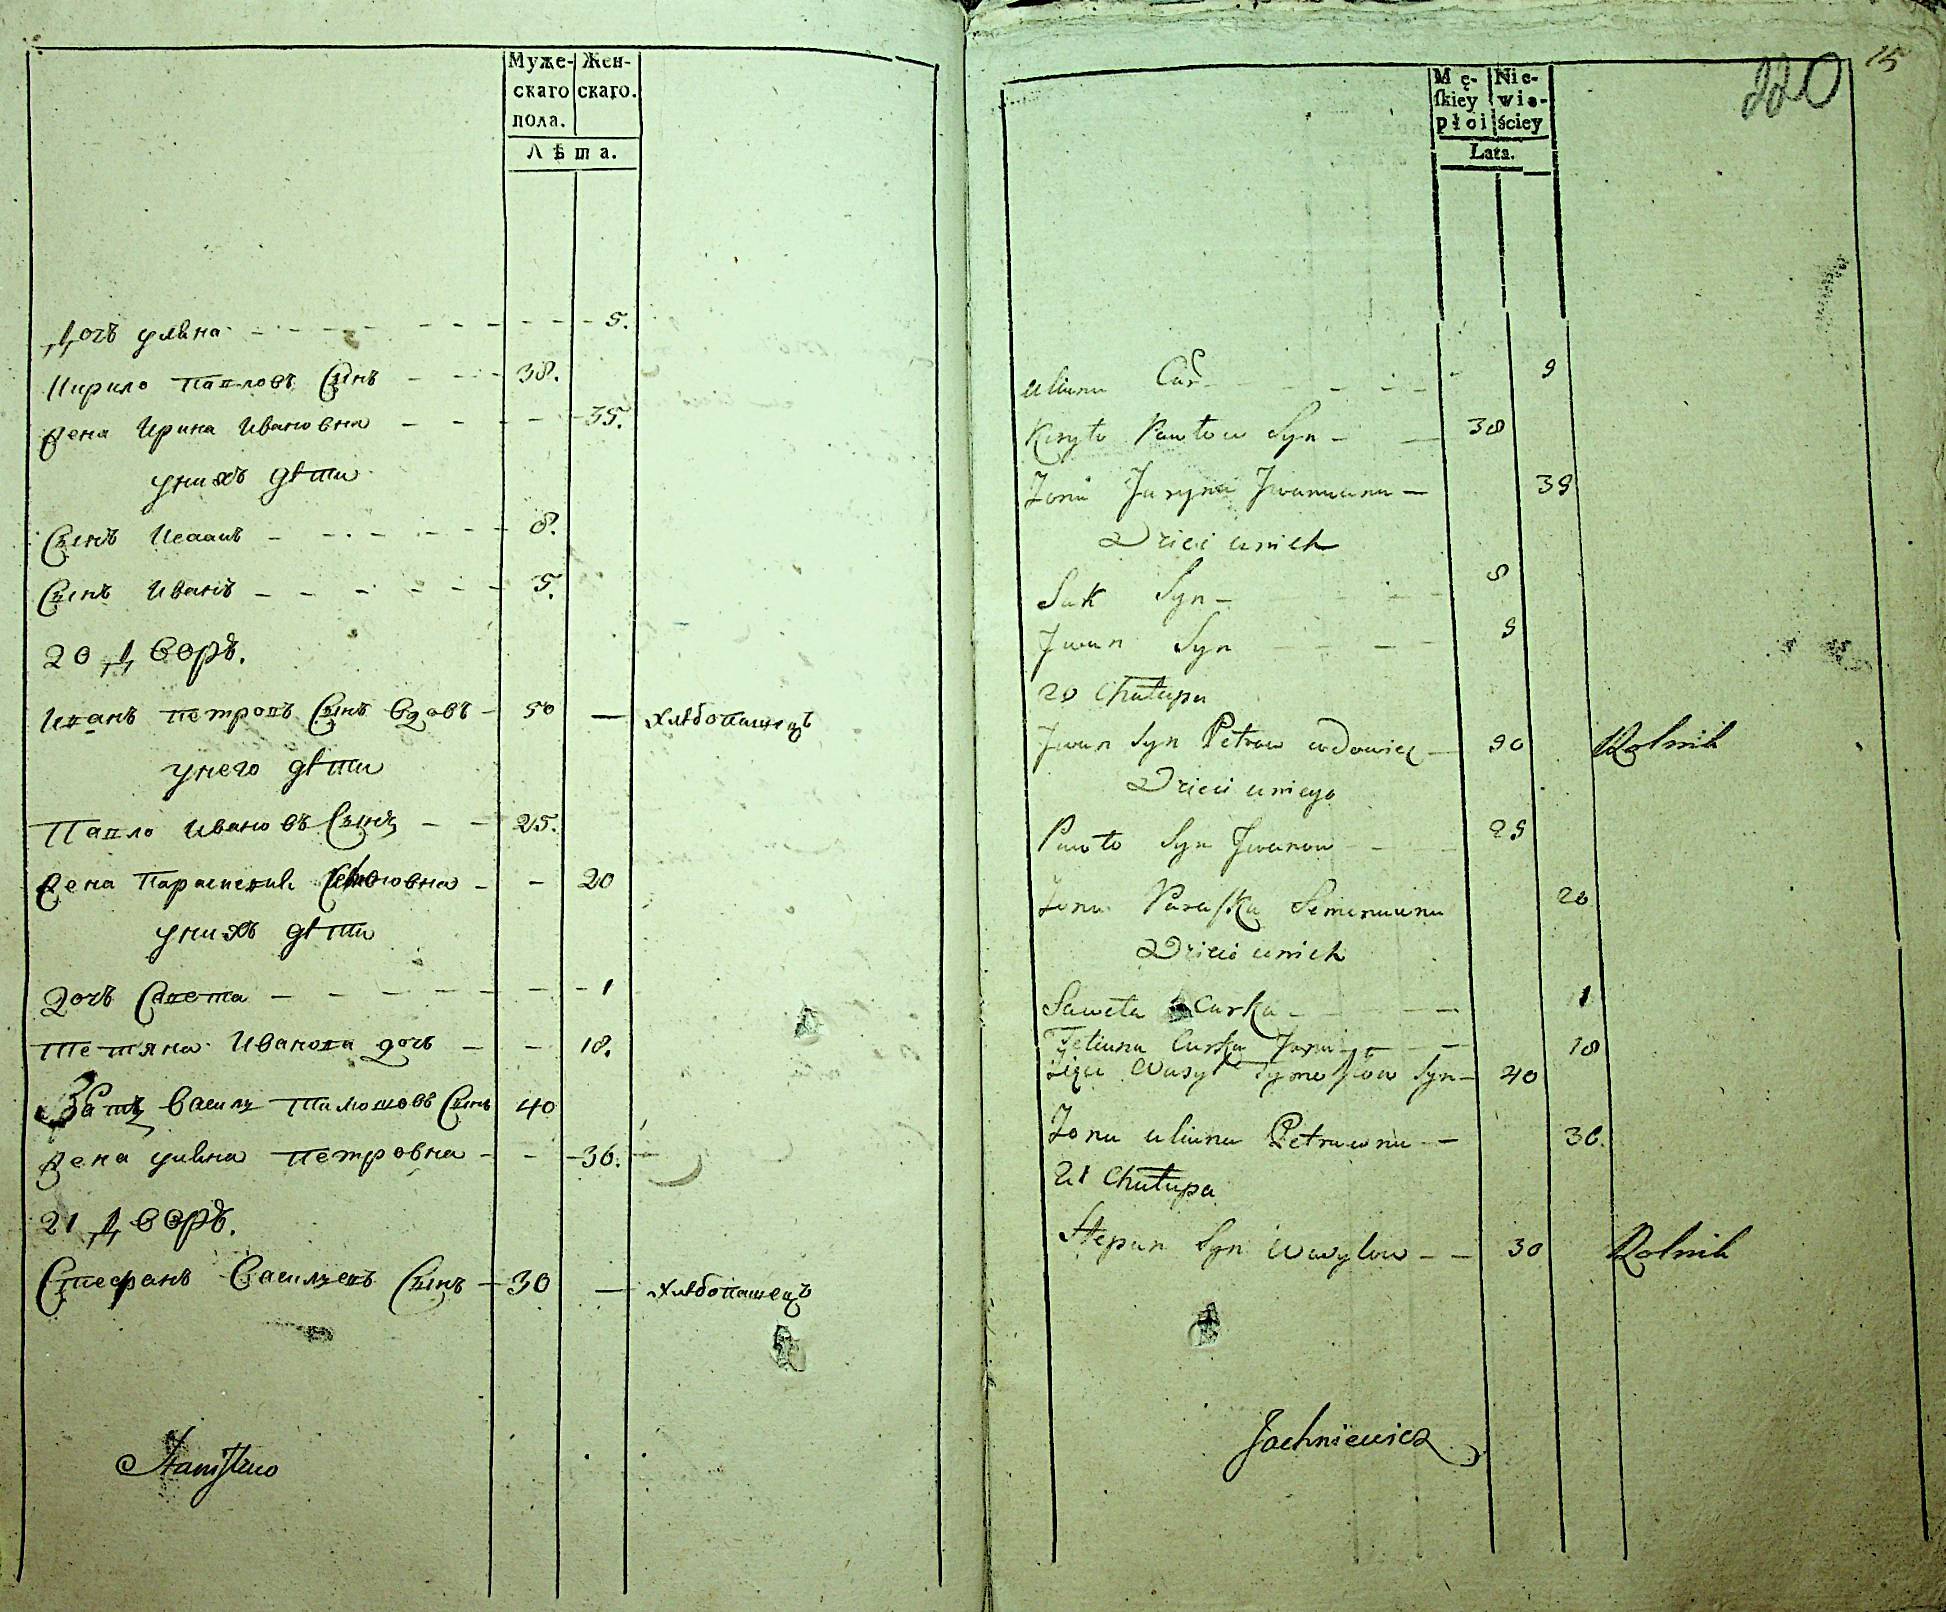 Муже- Жен-
скаго скаго.
пола.
Лѣта.
Дочъ уляна 5.
Кирило Павловъ Сынъ 38.
Жена Ирина Ивановна 35.
унихъ дѣти
Сынъ Исаакъ 8.
Сынъ Иванъ 5.
20 Дворъ.
Иванъ Петровъ Сынъ вдовъ 50 — хлѣбопашецъ
унего дѣти
Павло Ивановъ Сынъ 25.
Жена Парасковия 20
унихъ дѣти
дочъ Савета 1
Тетяна Иванова дочъ 18.
Зять Василь Тимошовъ Сынъ 40
Жена уляна Петровна 36.
21 Дворъ.
Стефанъ Васильевъ Сынъ 30 — хлѣбопашецъ
Stanisław
15
220
Mę- Nie-
ſkiey wie-
płci ściey
Lata.
Uliana Cór 5
Kiryło Pawłow Syn 38
Zona Jaryna Iwanwna 35
Dzieci unich
Sak Syn 8
Jwan Syn 5
20 Chałupa
Jwan Syn Petrow wdowiec 50 Rolnik
Dzieci uniego
Pawło Syn Jwanow 25
Zona Paraſka Semenuwna 20
Dzieci unich
Saweta Curka 1
Tetiana Curka 18
Wasyl Syn 40
Zona Uliana Petruwna 36.
21 Chałupa
Stepan Syn Wasylow 30 Rolnik
Jachniewicz